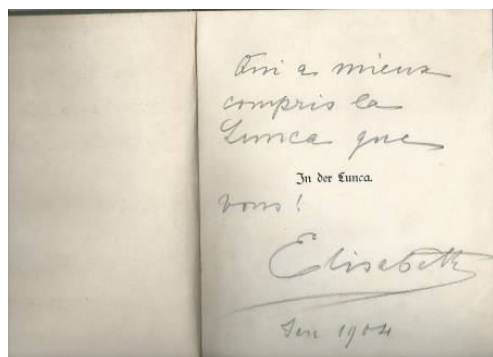 Qui a mieux
compris la
Lunca que
In der Lunca.
vous !
Elisabeth
1904